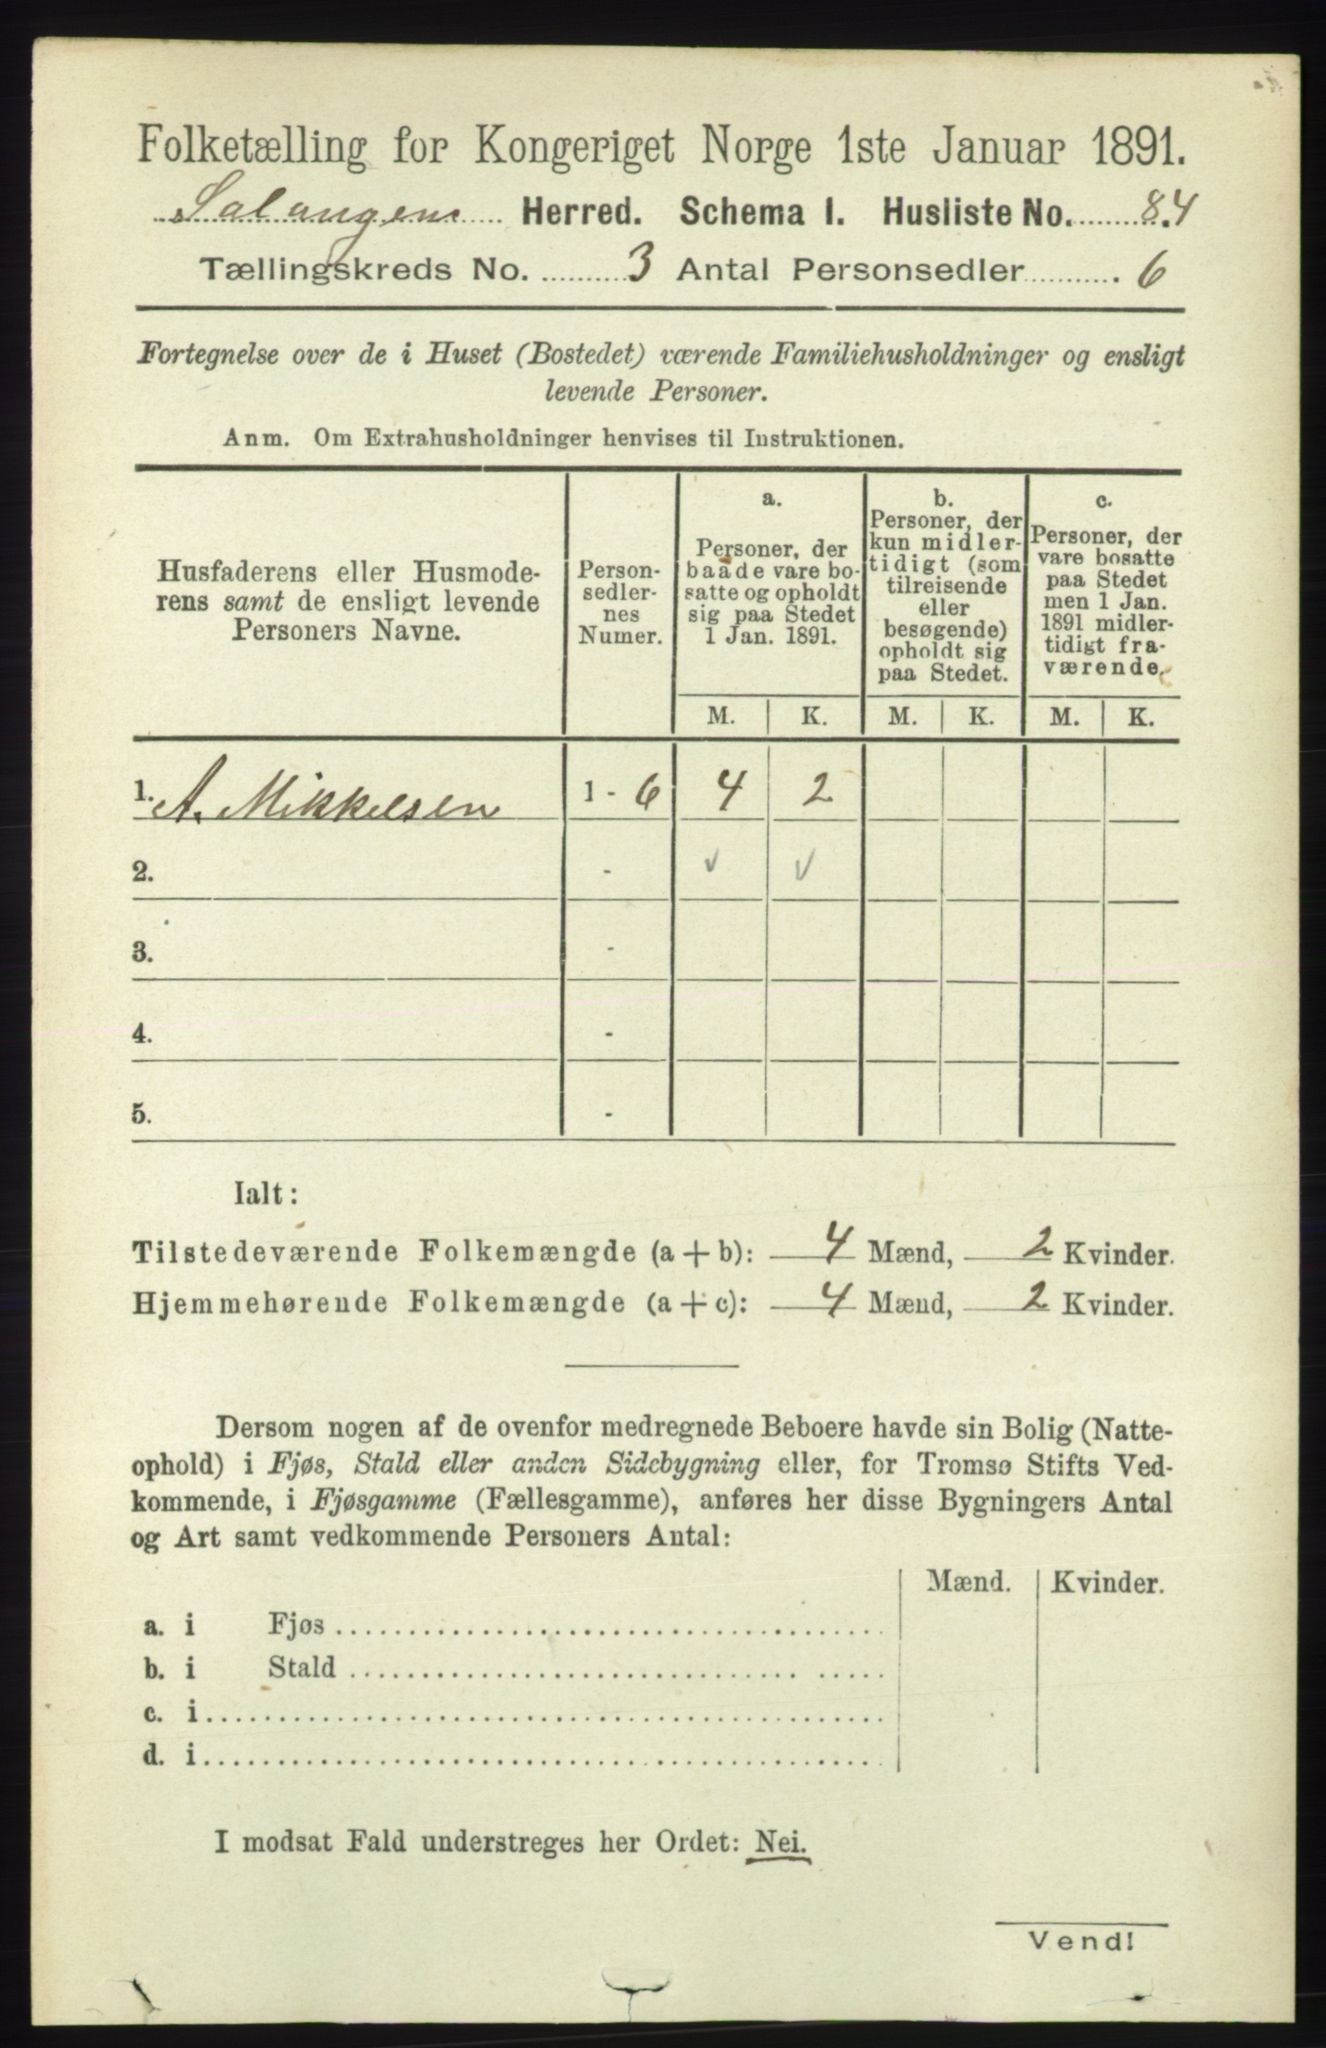 Folketælling for Kongeriget Norge 1ste Januar 1891.
Salangens Herred. Schema I. Husliste No. 84
Tællingskreds No. 3 Antal Personsedler 6
Fortegnelse over de i Huset (Bostedet) værende Familiehusholdninger og ensligt
levende Personer.
Anm. Om Extrahusholdninger henvises til Instruktionen.
Husfaderens eller Husmode-
rens samt de ensligt levende
Personers Navne.
Person-
sedler-
nes
Numer.
a.
Personer, der
baade vare bo-
satte og opholdt
sig paa Stedet
1 Jan. 1891.
b.
Personer, der
kun midler-
tidigt (som
tilreisende
eller
besøgende)
opholdt sig
paa Stedet.
c.
Personer, der
vare bosatte
paa Stedet
men 1 Jan.
1891 midler-
tidigt fra-
værende.
M. K. M. K. M. K.
1. A. Mikkelsen 1 - 6 4 2
2. - ✓ ✓
3. -
4. -
5. -
Ialt:
Tilstedeværende Folkemængde (a + b): 4 Mænd, 2 Kvinder.
Hjemmehørende Folkemængde (a + c): 4 Mænd, 2 Kvinder.
Dersom nogen af de ovenfor medregnede Beboere havde sin Bolig (Natte-
ophold) i Fjøs, Stald eller anden Sidebygning eller, for Tromsø Stifts Ved-
kommende, i Fjøsgamme (Fællesgamme), anføres her disse Bygningers Antal
og Art samt vedkommende Personers Antal:
Mænd. Kvinder.
a. i Fjøs
b. i Stald
c. i
d. i
I modsat Fald understreges her Ordet: Nei.
Vend!